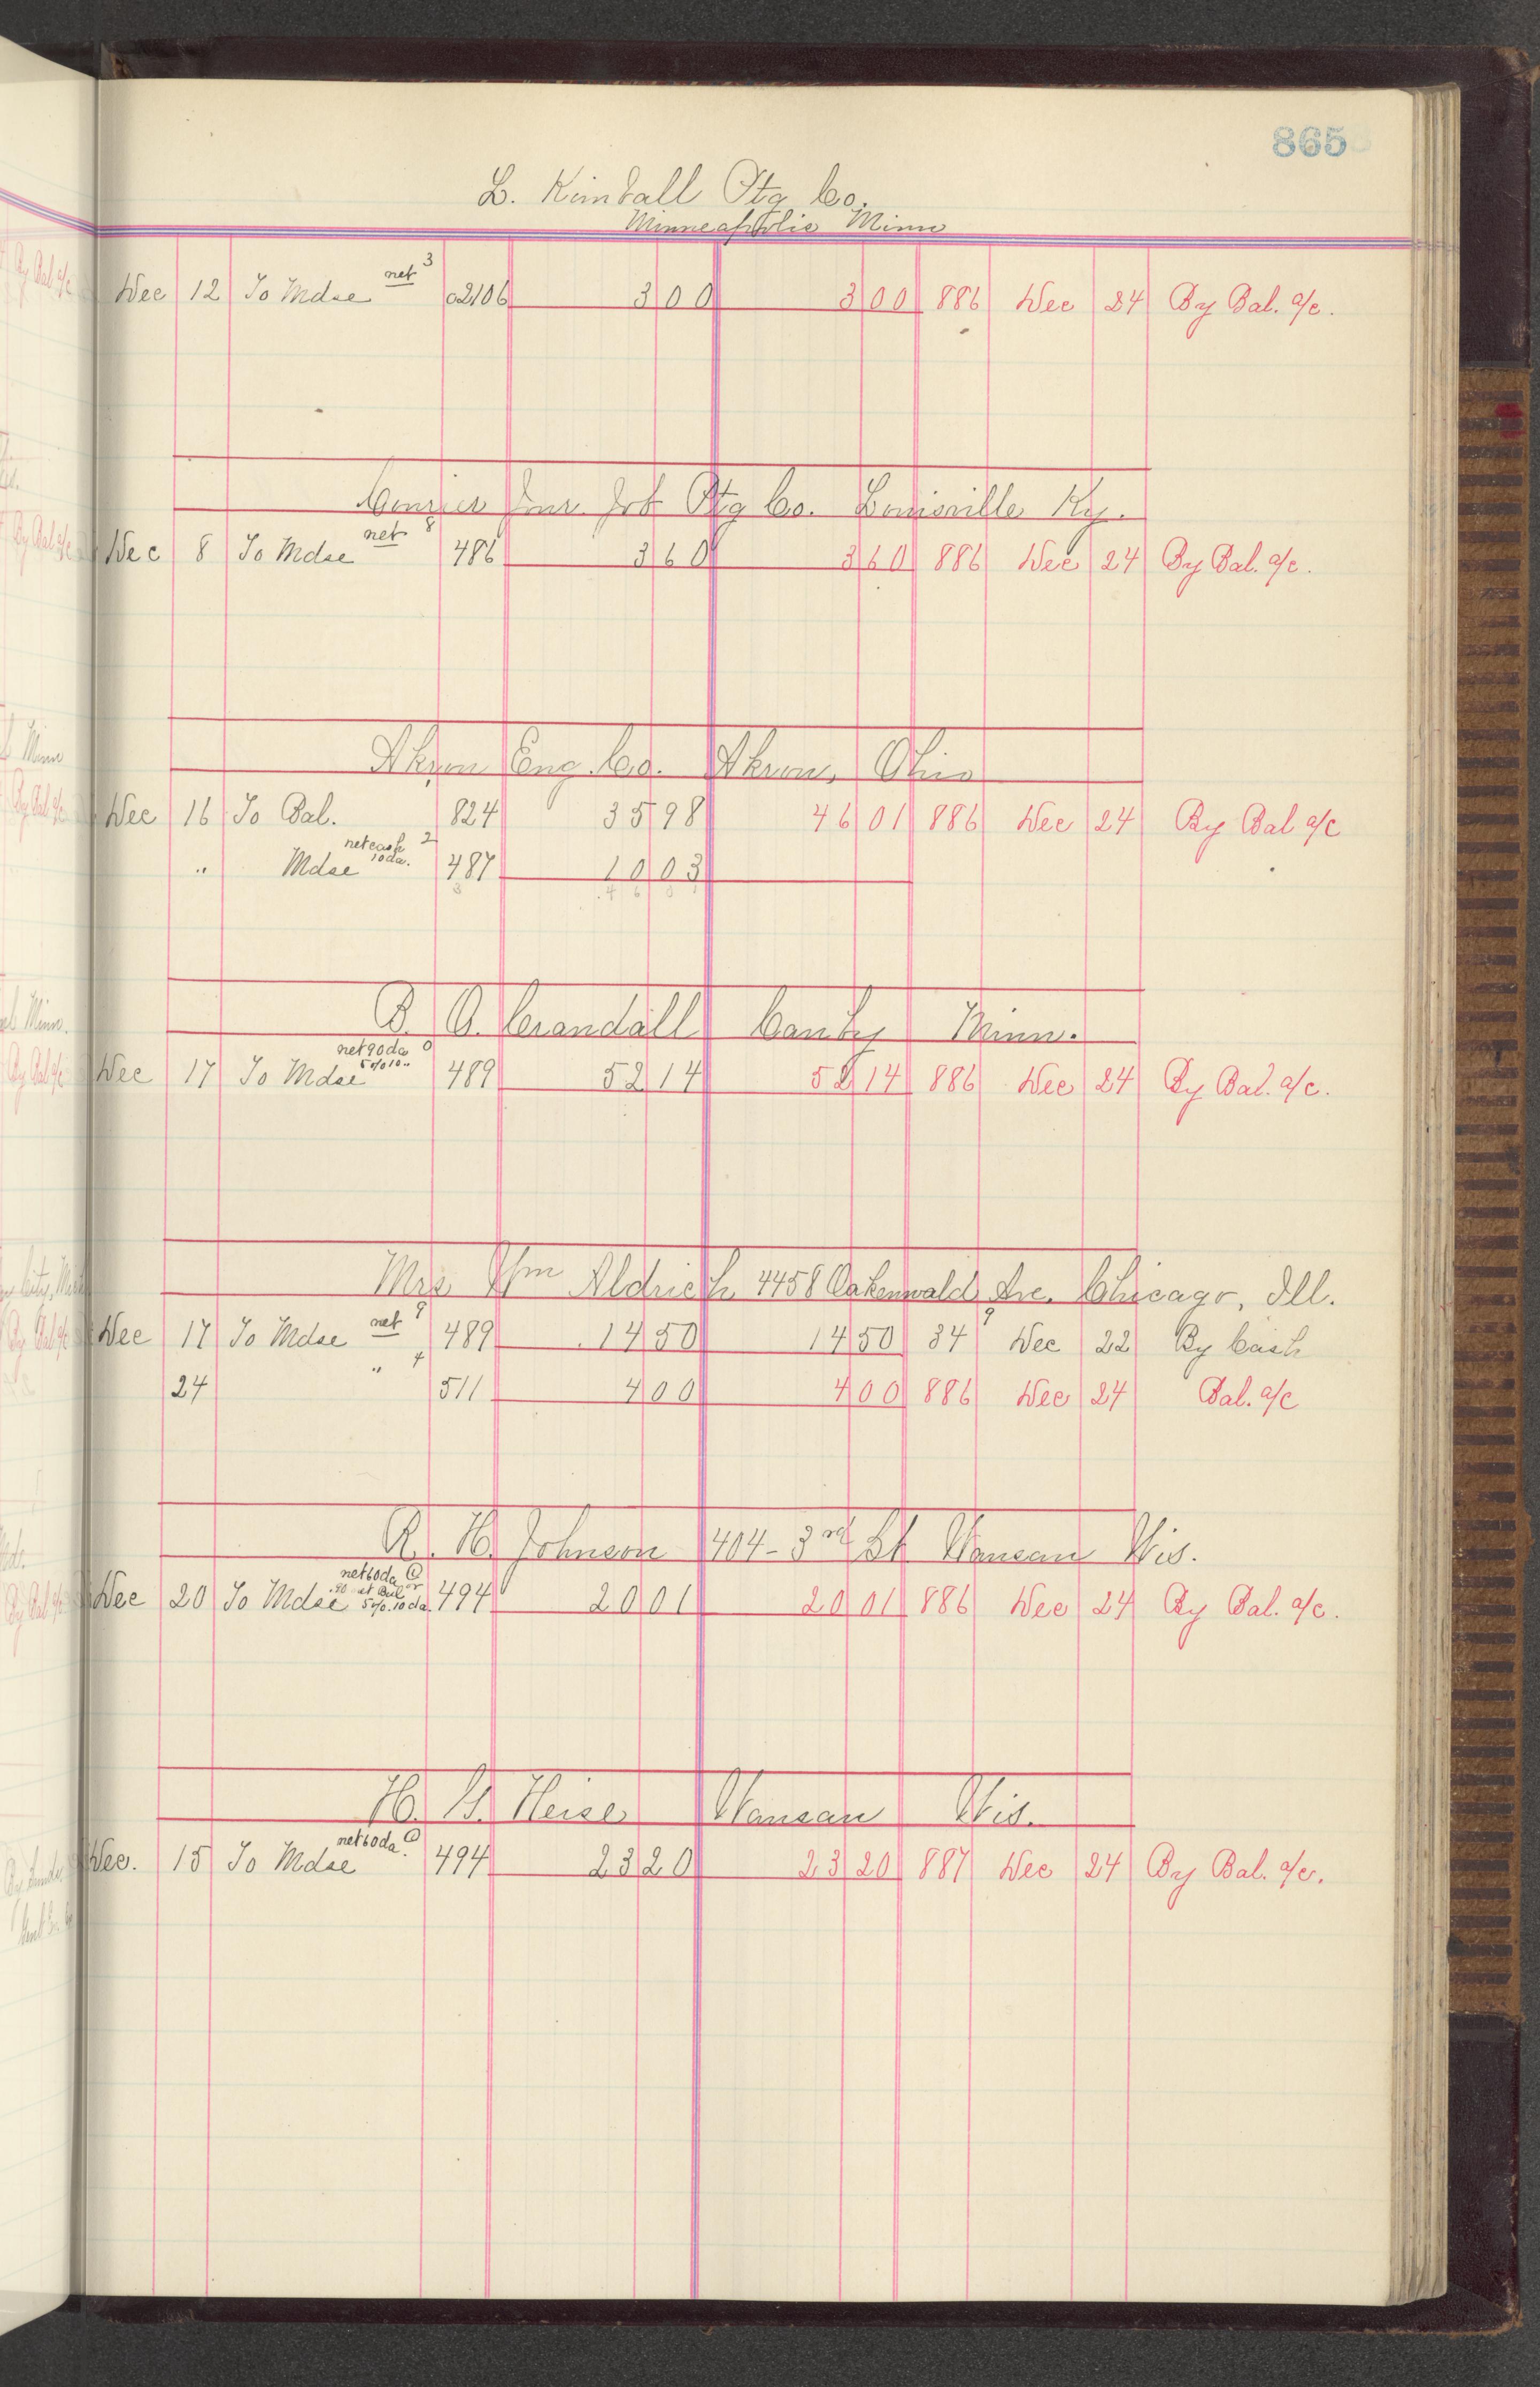 865
L. Kimball Ptg Co.
Minneapolis Minn
Dec 12 To Mdse net 3 02106 3 00 3 00 886 Dec 24 By Bal. a/c.
Courier Jour. Job Ptg Co. Louisville Ky.
Dec 8 To Mdse net 8 486 3 60 3 60 886 Dec 24 By Bal. a/c.
Akron Eng. Co. Akron, Ohio
Dec 16 To Bal. 824 35 98 46 01 886 Dec 24 By Bal a/c
" Mdse net cash 10 da. 2 487 10 03
3 46 01
B. O. Crandall Canby Minn.
Dec 17 To Mdse net 90 da 5% 10 " 0 489 52 14 52 14 886 Dec 24 By Bal. a/c.
Mrs Wm Aldrich 4458 Oakenwald Ave. Chicago, Ill.
Dec 17 To Mdse net 9 489 14 50 14 50 34 9 Dec 22 By Cash
24 " 4 511 4 00 4 00 886 Dec 24 Bal. a/c
R. H. Johnson 404-3rd St Wausau Wis.
Dec 20 To Mdse net 60 da 5% 10 da. 494 20 01 20 01 886 Dec 24 By Bal. a/c.
H. G. Heise Wausau Wis.
Dec. 15 To Mdse net 60 da. 494 23 20 23 20 887 Dec 24 By Bal. a/c.